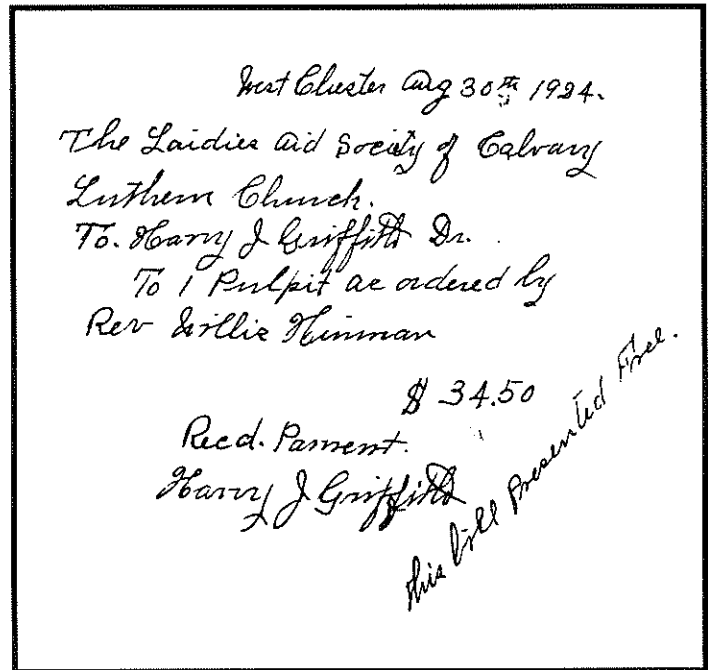 West Chester Aug 30th 1924.
The Laidies Aid Society of Calvary
Luthern Church.
To. Harry J Griffith Dr.
To 1 Pulpit as ordered by
Rev Willis Hinman
$ 34.50
Recd. Pament.
Harry J Griffith
this bill Presented Free.